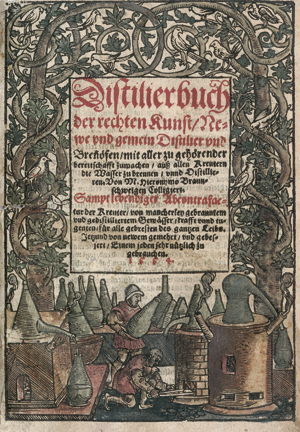 Distilierbuch
der rechten Kunst/ Ne-
we vnd gemein Distilier vnd
Breñöfen/ mit aller zu gehörender
bereitschafft zumachen/ auß allen Kreutern
die Wasser zu brennen/ vnnd Distillie-
ren. Von M. Hieronymo Braun-
schweigen Colligiert.
Sampt lebendiger Abcontrafac-
tur der Kreuter/ von mancherley gebrannten
vnd gedistilliertem Gewässer/ Krafft vnnd tu-
genten/ für alle gebresten des gantzen Leibs.
Jetzund von newem gemehrt/ vnd gebes-
sert/ Einem jeden sehr nützlich zu
gebrauchen.